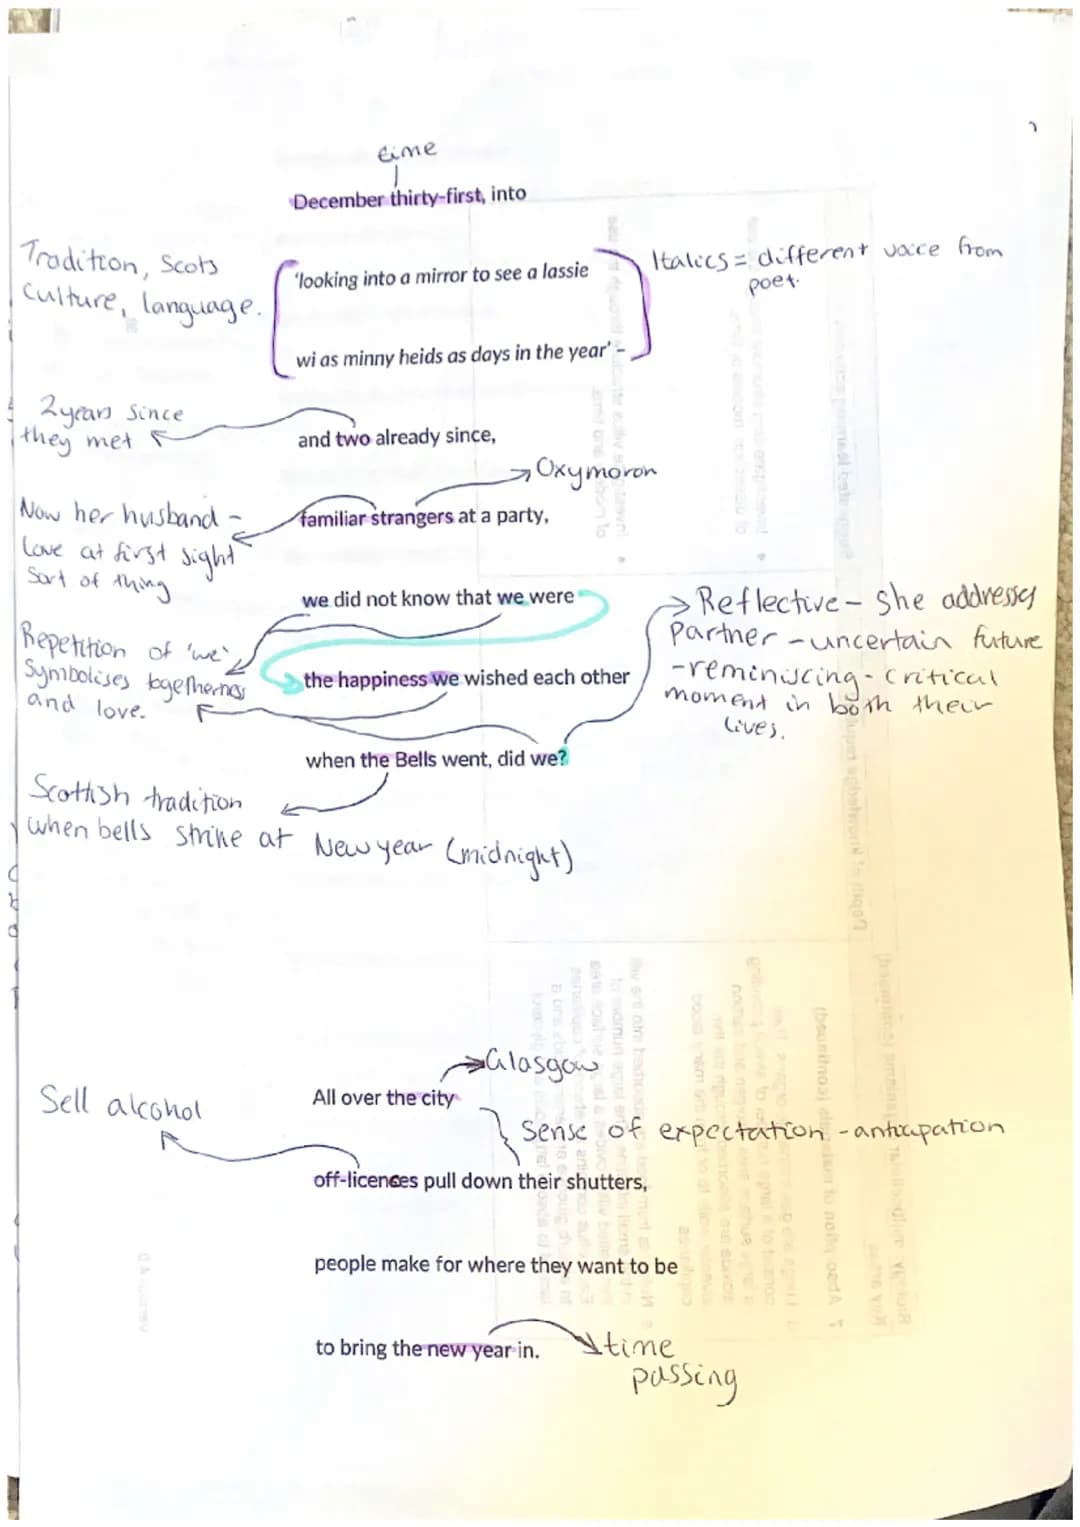 time
December thirty-first, into
Tradition, Scots
culture, language.
'looking into a mirror to see a lassie
Italics = different voice from
poet.
wi as minny heids as days in the year' -
2 years since
they met
and two already since,
Oxymoron
Now her husband -
love at first sight
sort of thing
familiar strangers at a party,
we did not know that we were
Reflective - She addresses
partner - uncertain future
- reminiscing - critical
moment in both their
lives.
Repetition of 'we'
Symbolises togetherness
and love.
the happiness we wished each other
when the Bells went, did we?
Scottish tradition
when bells strike at New year (midnight)
Glasgow
Sell alcohol
All over the city
Sense of expectation - anticipation
off-licences pull down their shutters,
people make for where they want to be
to bring the new year in.
time
passing